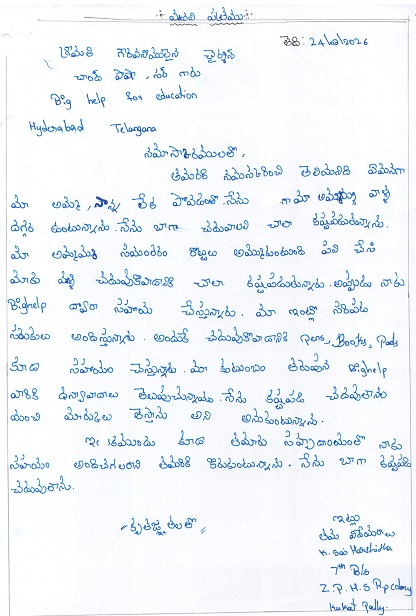 తేది : 24/10/2026
శ్రీమతి గౌరవనీయులైన చైర్మన్
చాంద్ పాషా, సర్ గారు
Big help for education
Hyderabad Telangana
నమస్కారములతో,
తమరికి నమస్కరించి తెలియనిది ఏమనగా
మా అమ్మ, నాన్న లేక పోవడంతో నేను మా అమ్మమ్మ వాళ్ళ
దగ్గర ఉంటున్నాను. నేను బాగా చదువాలని చాలా కష్టపడుతున్నాను.
మా అమ్మమ్మ అమ్ముకుంటుంది పని చేసి
మాకు చదువుకోవడానికి చాలా కష్టపడుతున్నారు. అప్పుడు నాకు
Bighelp ద్వారా సహాయం చేస్తున్నారు. మా ఇంట్లో సరిపడ
సరుకులు అందిస్తున్నారు. అందుకే చదువుకోవడానికి Pens, Books, Pads
కూడా సహాయం చేస్తున్నారు. మా కుటుంబం తరుపున Bighelp
వారికి ధన్యవాదాలు తెలుపుచున్నాము. నేను కష్టపడి చదువుతాను
మంచి మార్కులు తెస్తాను అని అనుకుంటున్నాను.
ఇక ముందు కూడా తమరు సహృదయంతో నాకు
సహాయం అందించగలరని తమరికి కోరుకుంటున్నాను. నేను బాగా కష్టపడి
చదువుతాను.
కృతజ్ఞతలతో
ఇట్లు
తమ విధేయురాలు
K. Sai Harshitha
7th B/s
Z.P.H.S Rp colony
Kukat Pally.